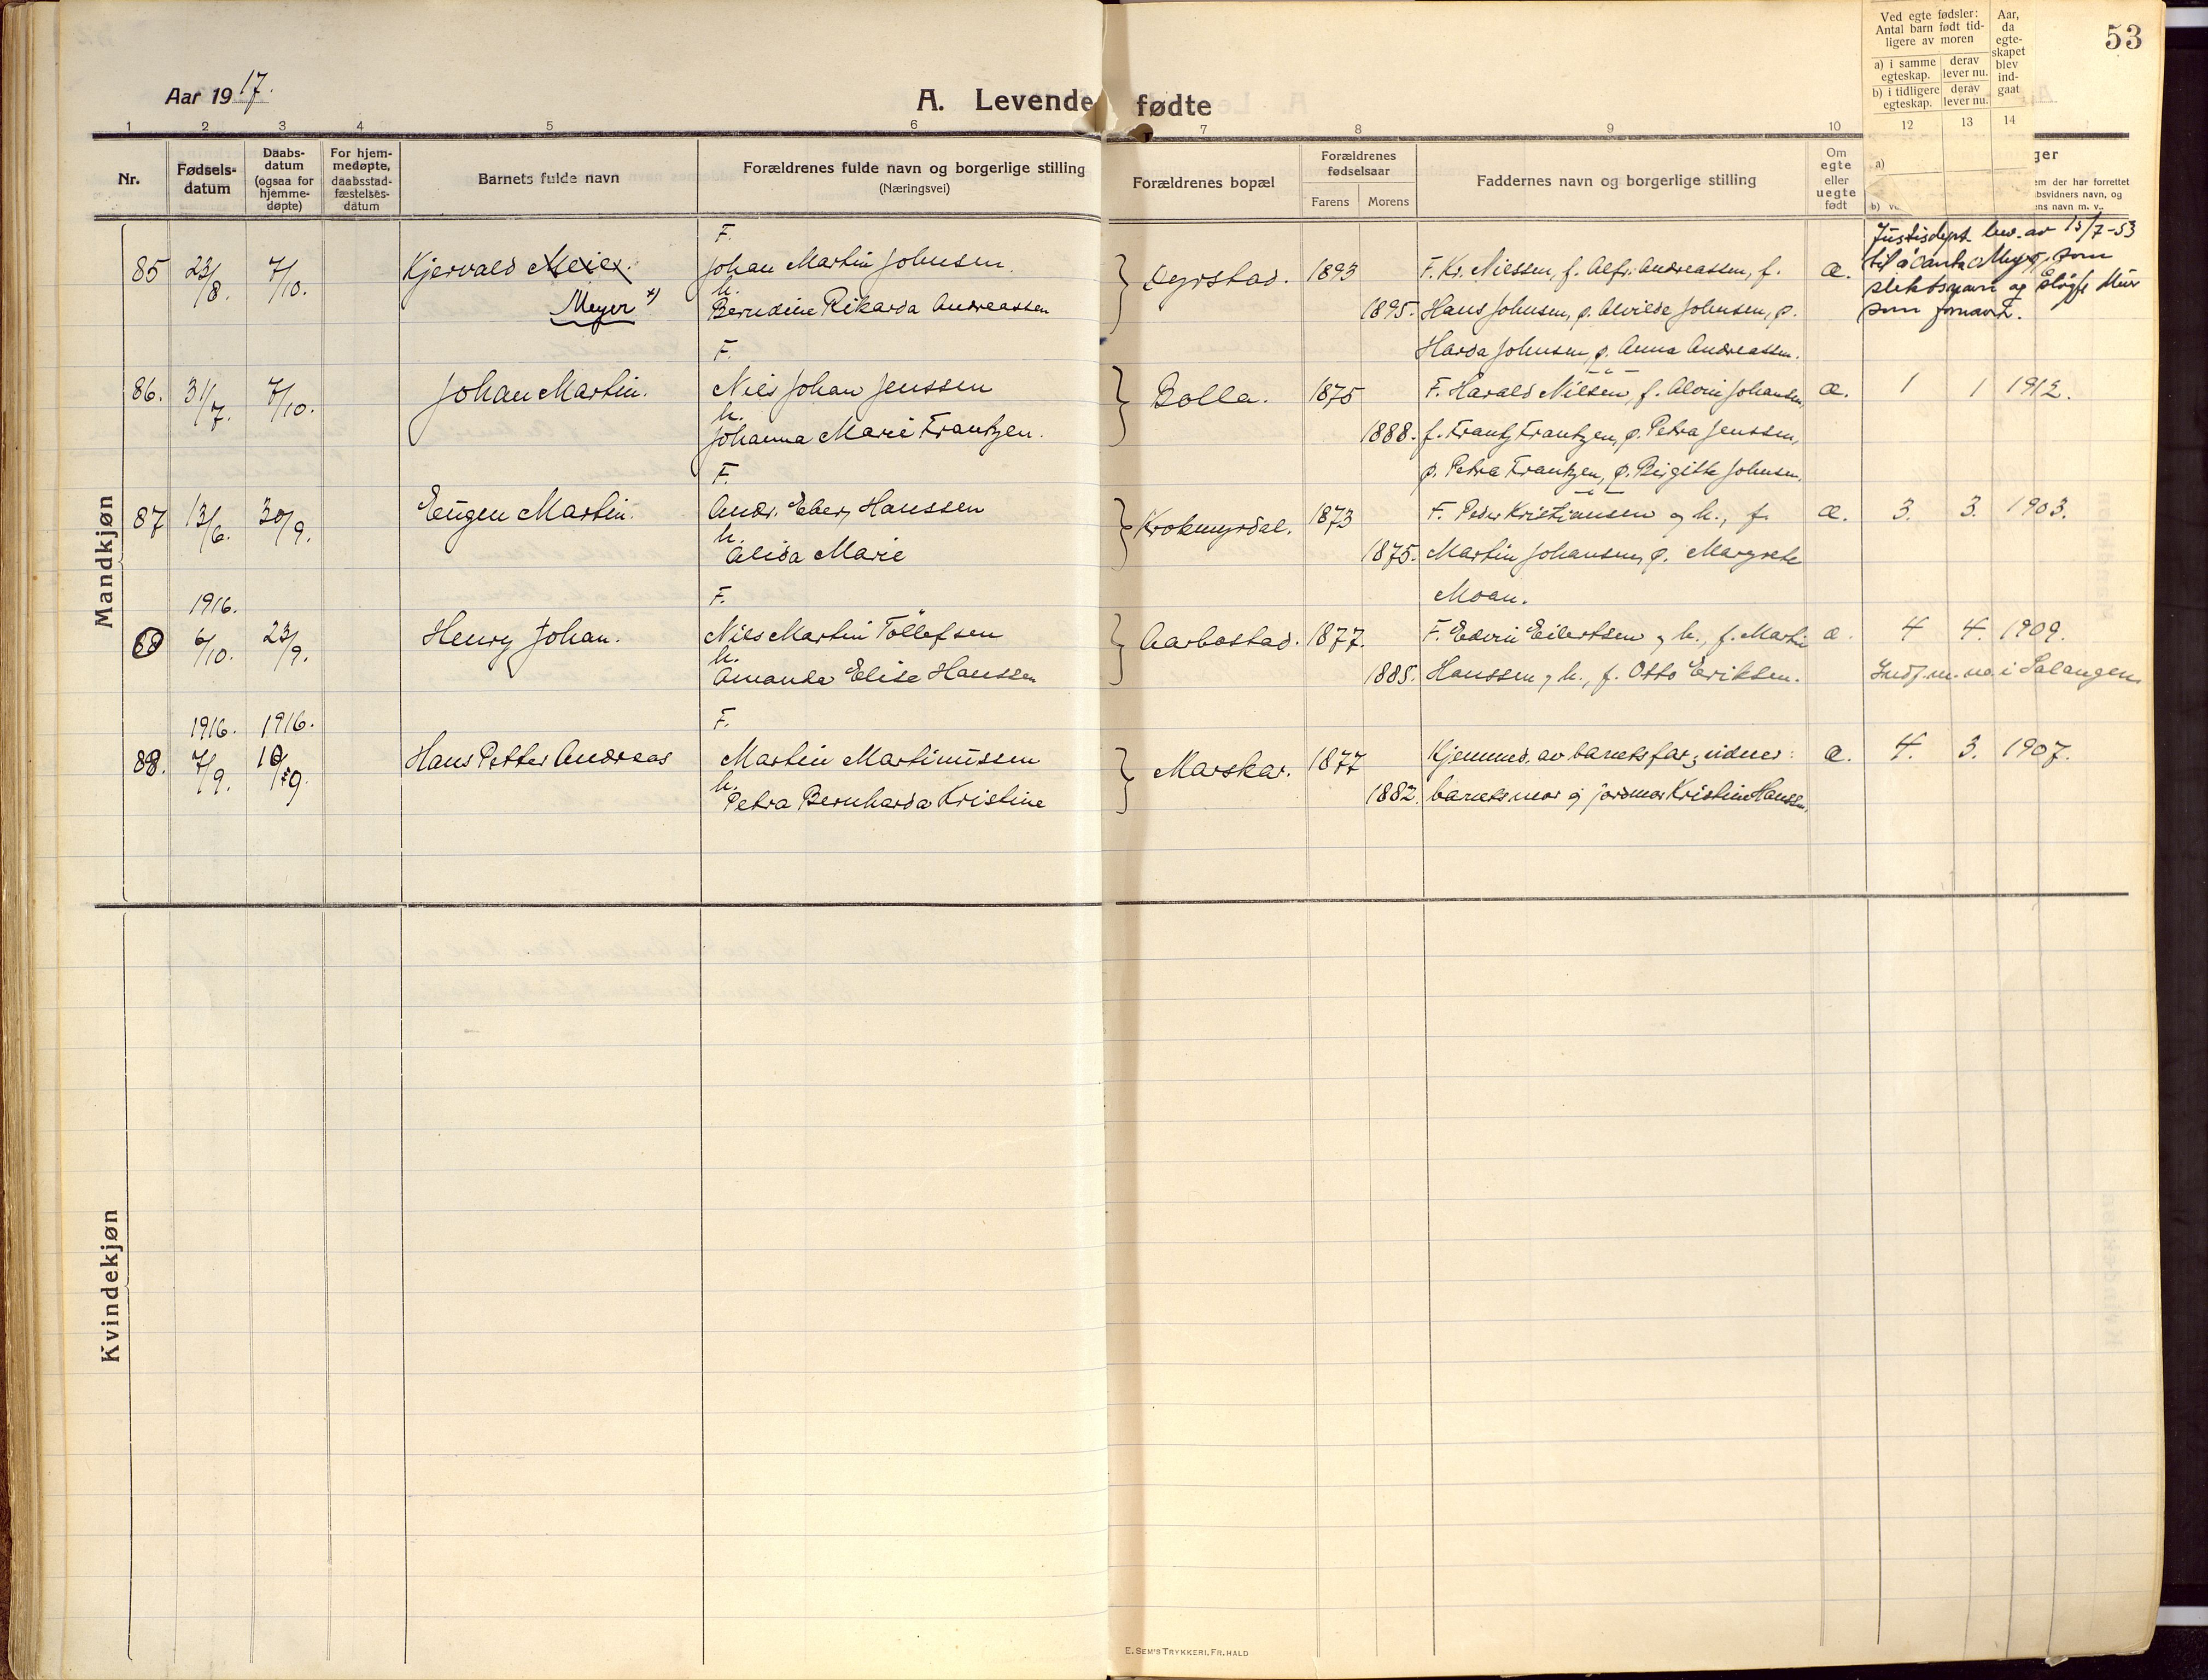 53
Ved egte fødsler:
Antal barn født tid-
ligere av moren
Aar,
da
egte-
skapet
blev
ind-
gaat
a) i samme
egteskap.
derav
lever nu.
b) i tidligere
egteskap.
derav
lever nu.
12 13 14
a)
b)
Aar 1917.
A. Levende fødte
1 2 3 4 5 6 7 8 9 10
Nr.
Fødsels-
datum
Daabs-
datum
(ogsaa for
hjemme-
døpte)
For hjem-
medøpte,
daabsstad-
fæstelses-
datum
Barnets fulde navn
Forældrenes fulde navn og borgerlige stilling
(Næringsvei)
Forældrenes bopæl
Forældrenes
fødselsaar
Farens Morens
Faddernes navn og borgerlige stilling
Om
egte
eller
uegte
født
ger
em der har forrettet
bsvidners navn, og
ens navn m. v.
Mandkjøn
F.
85 23/8. 7/10. Kjervald Meier. Johan Martin Johnsen. Dyrstad. 1893 F. Kr. Nilssen, f. Alfr. Andreassen, f. æ.
Meyer x) h. Berndine Rikarda Andreassen 1895. Hans Johnsen, p. Alvilde Johnsen, p.
Harda Johnsen, p. Anna Andreassen.
Justisdept. bev. av 15/7-53
til å anta Myer som
slektsnavn og sløyfe
som fornavn.
F.
86. 31/7. 7/10. Johan Martin. Nils Johan Jenssen Bolla. 1875 F. Harald Nilsen, f. Alvin Johansen, æ. 1 1 1912.
h. Johanna Marie Frantzen. 1888. f. Frantz Frantzen, p. Petra Jenssen,
p. Petra Frantzen, p. Birgitte Johnsen.
F.
87 13/6. 30/9. Eugen Martin. Andr. Eberg Hanssen Krokmyrdal. 1873 F. Peder Kristiansen og h., f. æ. 3. 3. 1903.
h. Alida Marie 1875. Martin Johansen, p. Margrete
Moan.
1916. F.
88 6/10. 23/9. Henry Johan. Nils Martin Tollefsen Aarbostad. 1877. F. Edvin Eilertsen og h., f. Martin æ. 4 4. 1909.
h. Amanda Elise Hanssen 1885. Hanssen og h., f. Otto Eriksen. Indf. m. no. i Salangen.
1916. 1916. F.
88. 7/9. 10/9. Hans Petter Andreas Martin Martinussen Marskar. 1877 Hjemmed. av barnets far; vidner: æ. 4. 3. 1907.
h. Petra Bernharda Kristine 1882. barnets mor og jordmor Kristine Hanssen.
Kvindekjøn
E. SEM'S TRYKKERI, FR. HALD